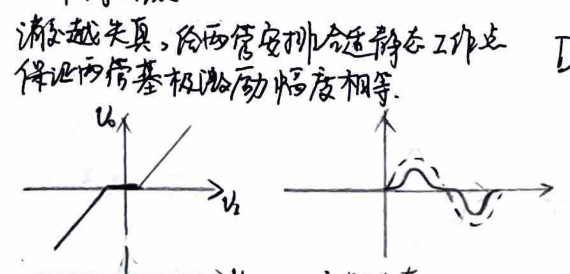 消交越失真，给两管安排合适静态工作点
保证两管基极激励幅度相等.
V₀
V₂